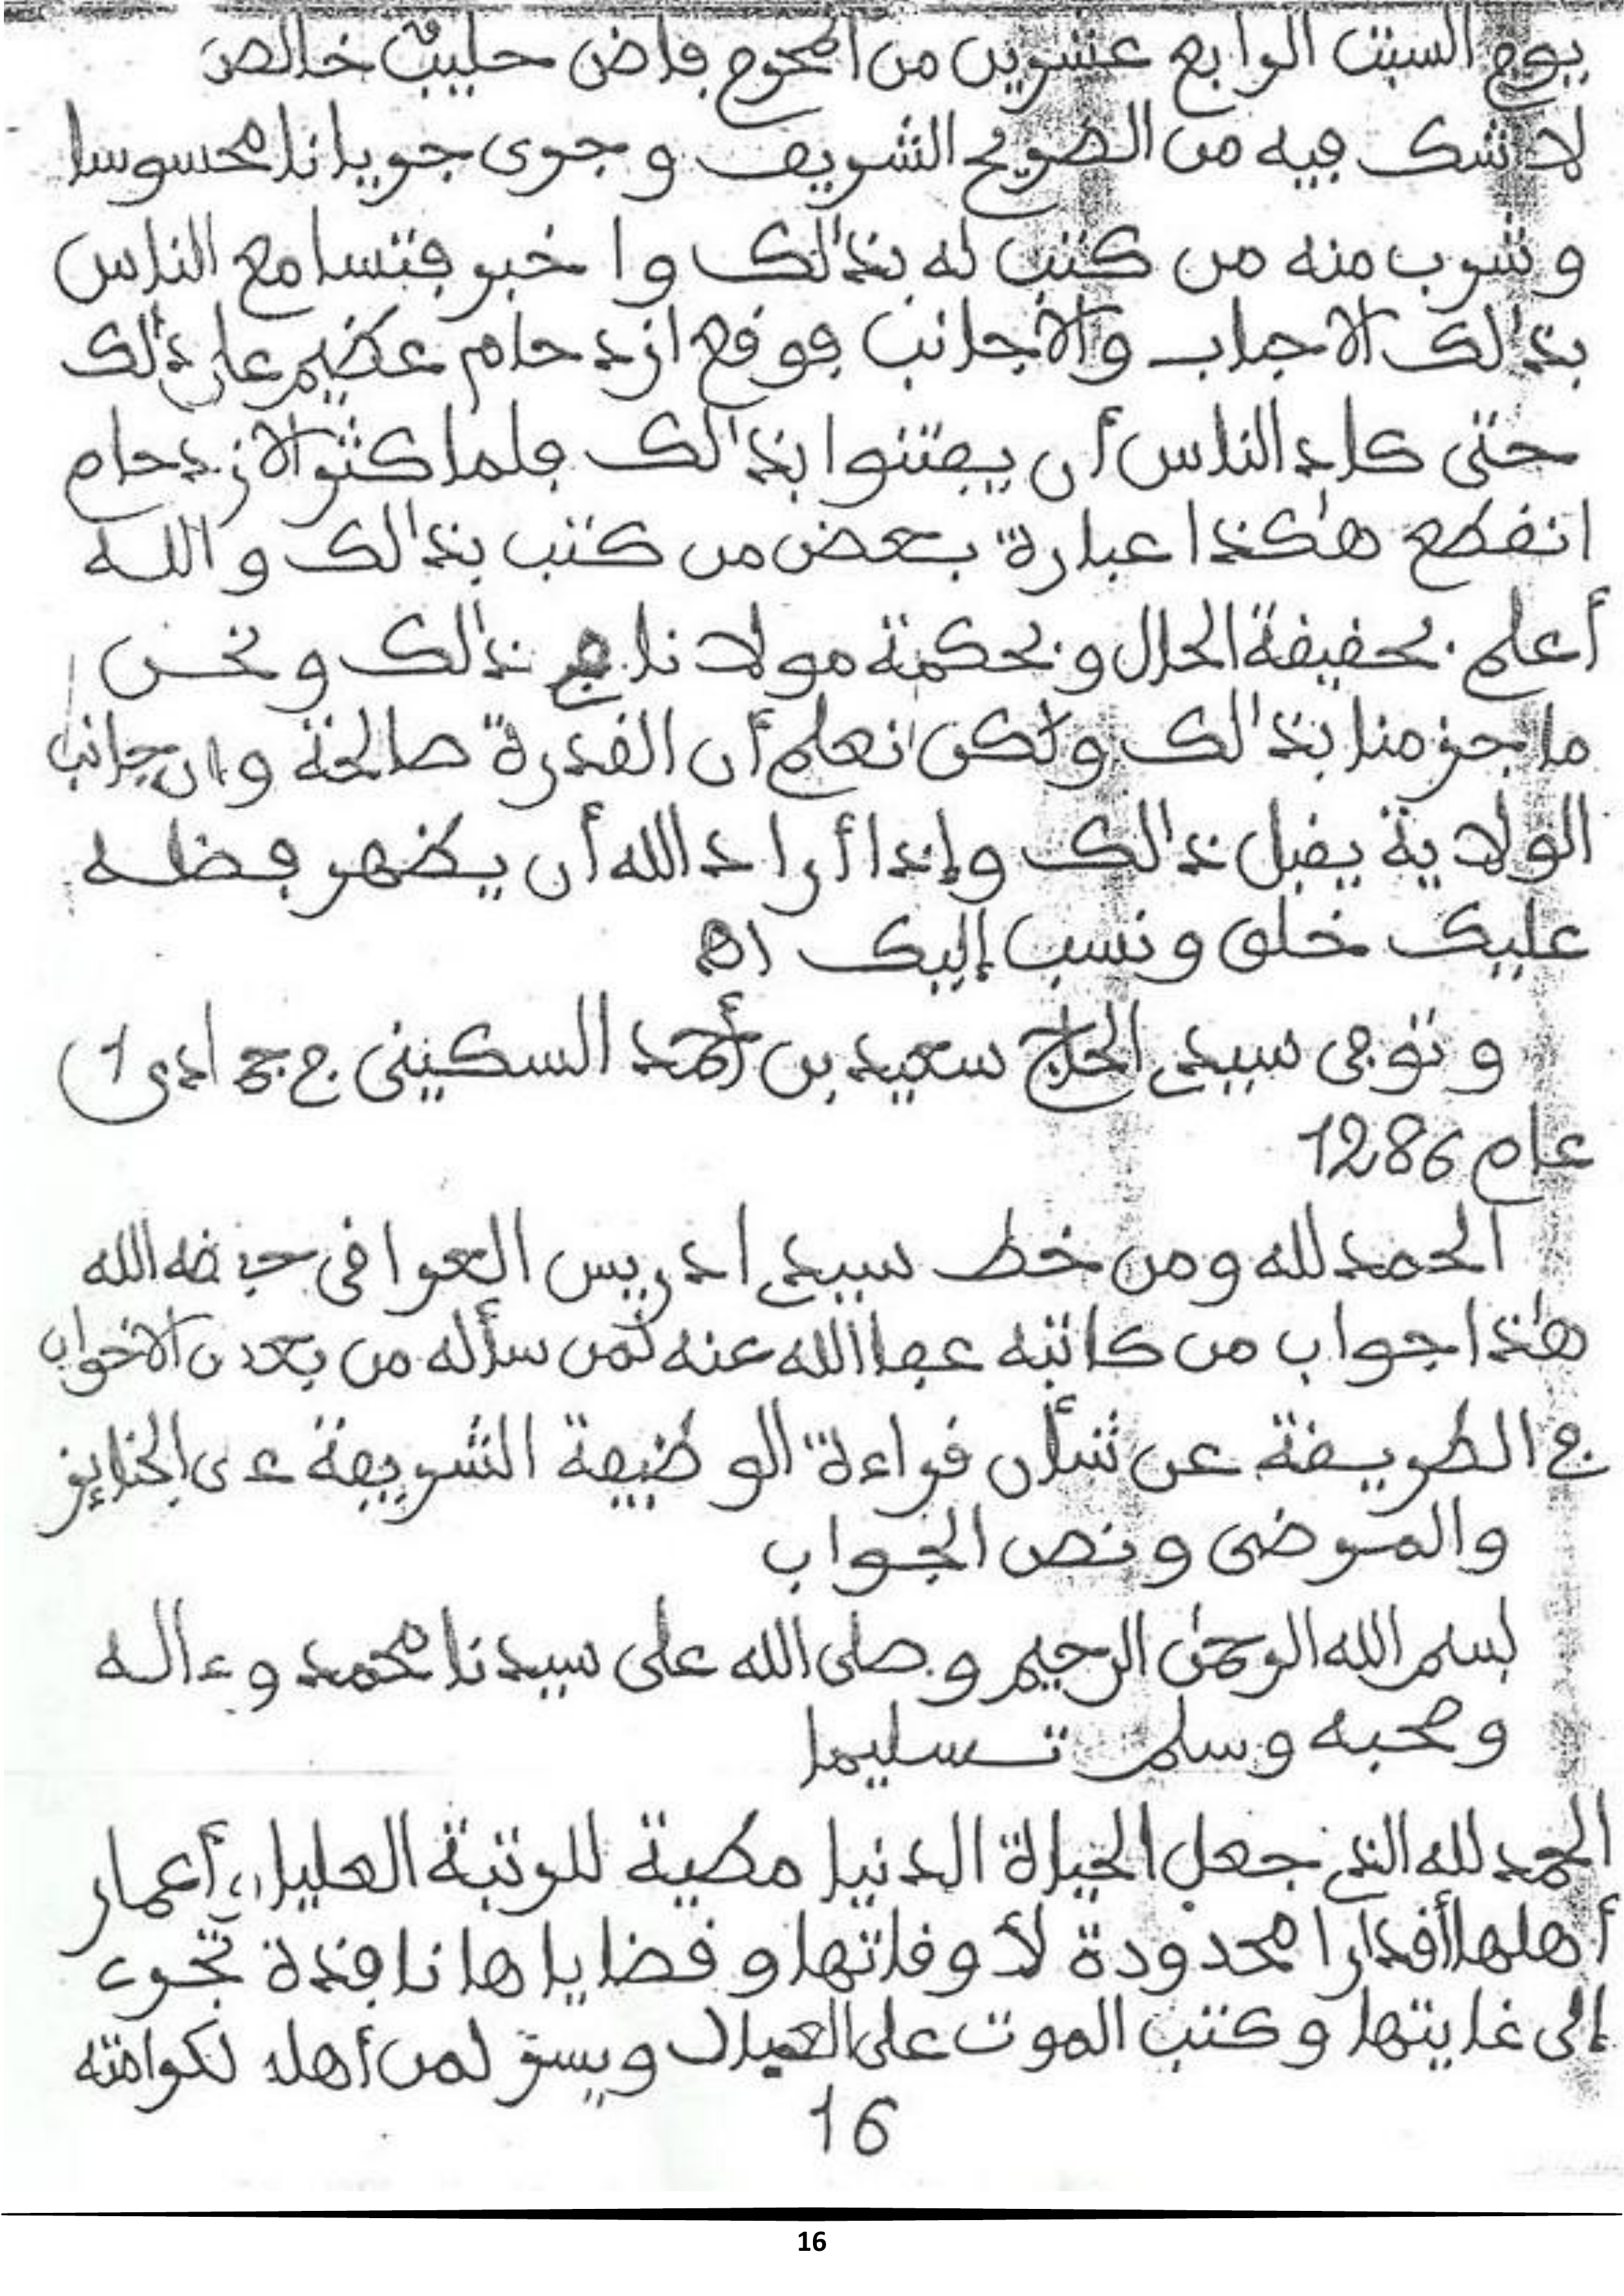 يوم السبت الرابع عشرين من المحرم فاض حليب خالص
لاشك فيه من الضريح الشريف وجرى جريانا محسوسا
وشرب منه من كتب له بذالك واخبر فتسامع الناس
بذالك الاحباب والأجانب فوقع ازدحام عظيم على ذالك
حتى كاد الناس أن يفتنوا بذالك فلما كثر الازدحام
انقطع هكذا عبارة بعض من كتب بذالك والله
أعلم بحقيقة الحال وبحكمة مولانا في ذالك ونحن
ما جزمنا بذالك ولكن نعلم أن القدرة صالحة وان جانب
الولاية يقبل ذالك وإذا أراد الله أن يظهر فضله
عليك خلق ونسب إليك اه
وتوفى سيدي الحاج سعيد بن أحمد السكيني في جمادى 1
عام 1286
الحمد لله ومن خط سيدي ادريس العراقى حفظه الله
هذا جواب من كاتبه عفا الله عنه لمن سأله من بعض الاخوان
في الطريقة عن شأن قراءة الوظيفة الشريفة على الجنايز
والمرضى ونص الجواب
بسم الله الرحمن الرحيم وصلى الله على سيدنا محمد وءاله
وصحبه وسلم تسليما
الحمد لله الذي جعل الحياة الدنيا مطية للرتبة العليا، أعمار
أهلها أقدارا محدودة لأوقاتها وقضاياها نافذة تجرى
إلى غايتها وكتب الموت على العباد ويسر لمن أهله لكرامته
16
16